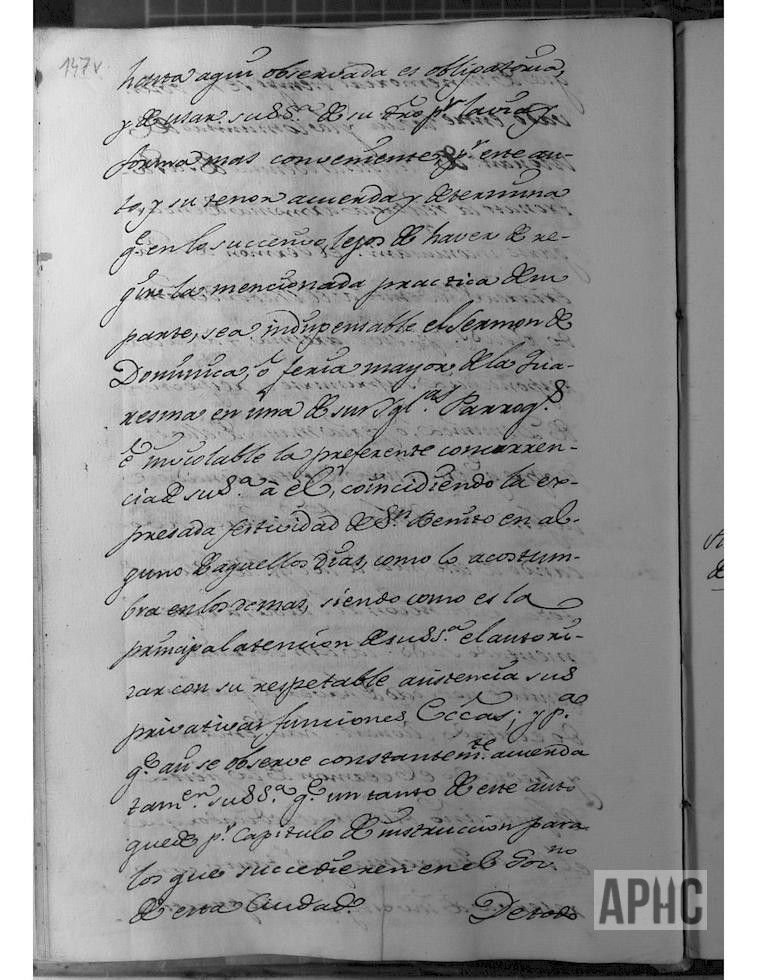 147v
hasta aqui observada es obligatoria,
y de usar su SSª. de su dro pr. la via y
forma mas conveniente, pr. este au-
to, y su tenor acuerda y determina
qe. en lo succesivo, lejos de haver de re-
gir la mencionada practica de su
parte, sea indispensable el Sermon de
Dominica, ô feria mayor de la Qua-
resma en una de sus Yglas. Parroqs.
è inviolable la preferente concurren-
cia de su Sª. â el, coincidiendo la ex-
presada festividad de Sn. Benito en al-
guno de aquellos dias, como lo acostum-
bra en los demas, siendo como es la
principal atencion de su SSª. el autori-
zar con su respetable asistencia sus
privativas funciones Eccâs; y pª.
qe. asi se observe constantemte. acuerda
tamen. su SSª. qe. un tanto de este auto
quede pr. Capitulo de instruccion para
los que succedieren en el Govno.
de esta Ciudad.
De todo
APHC